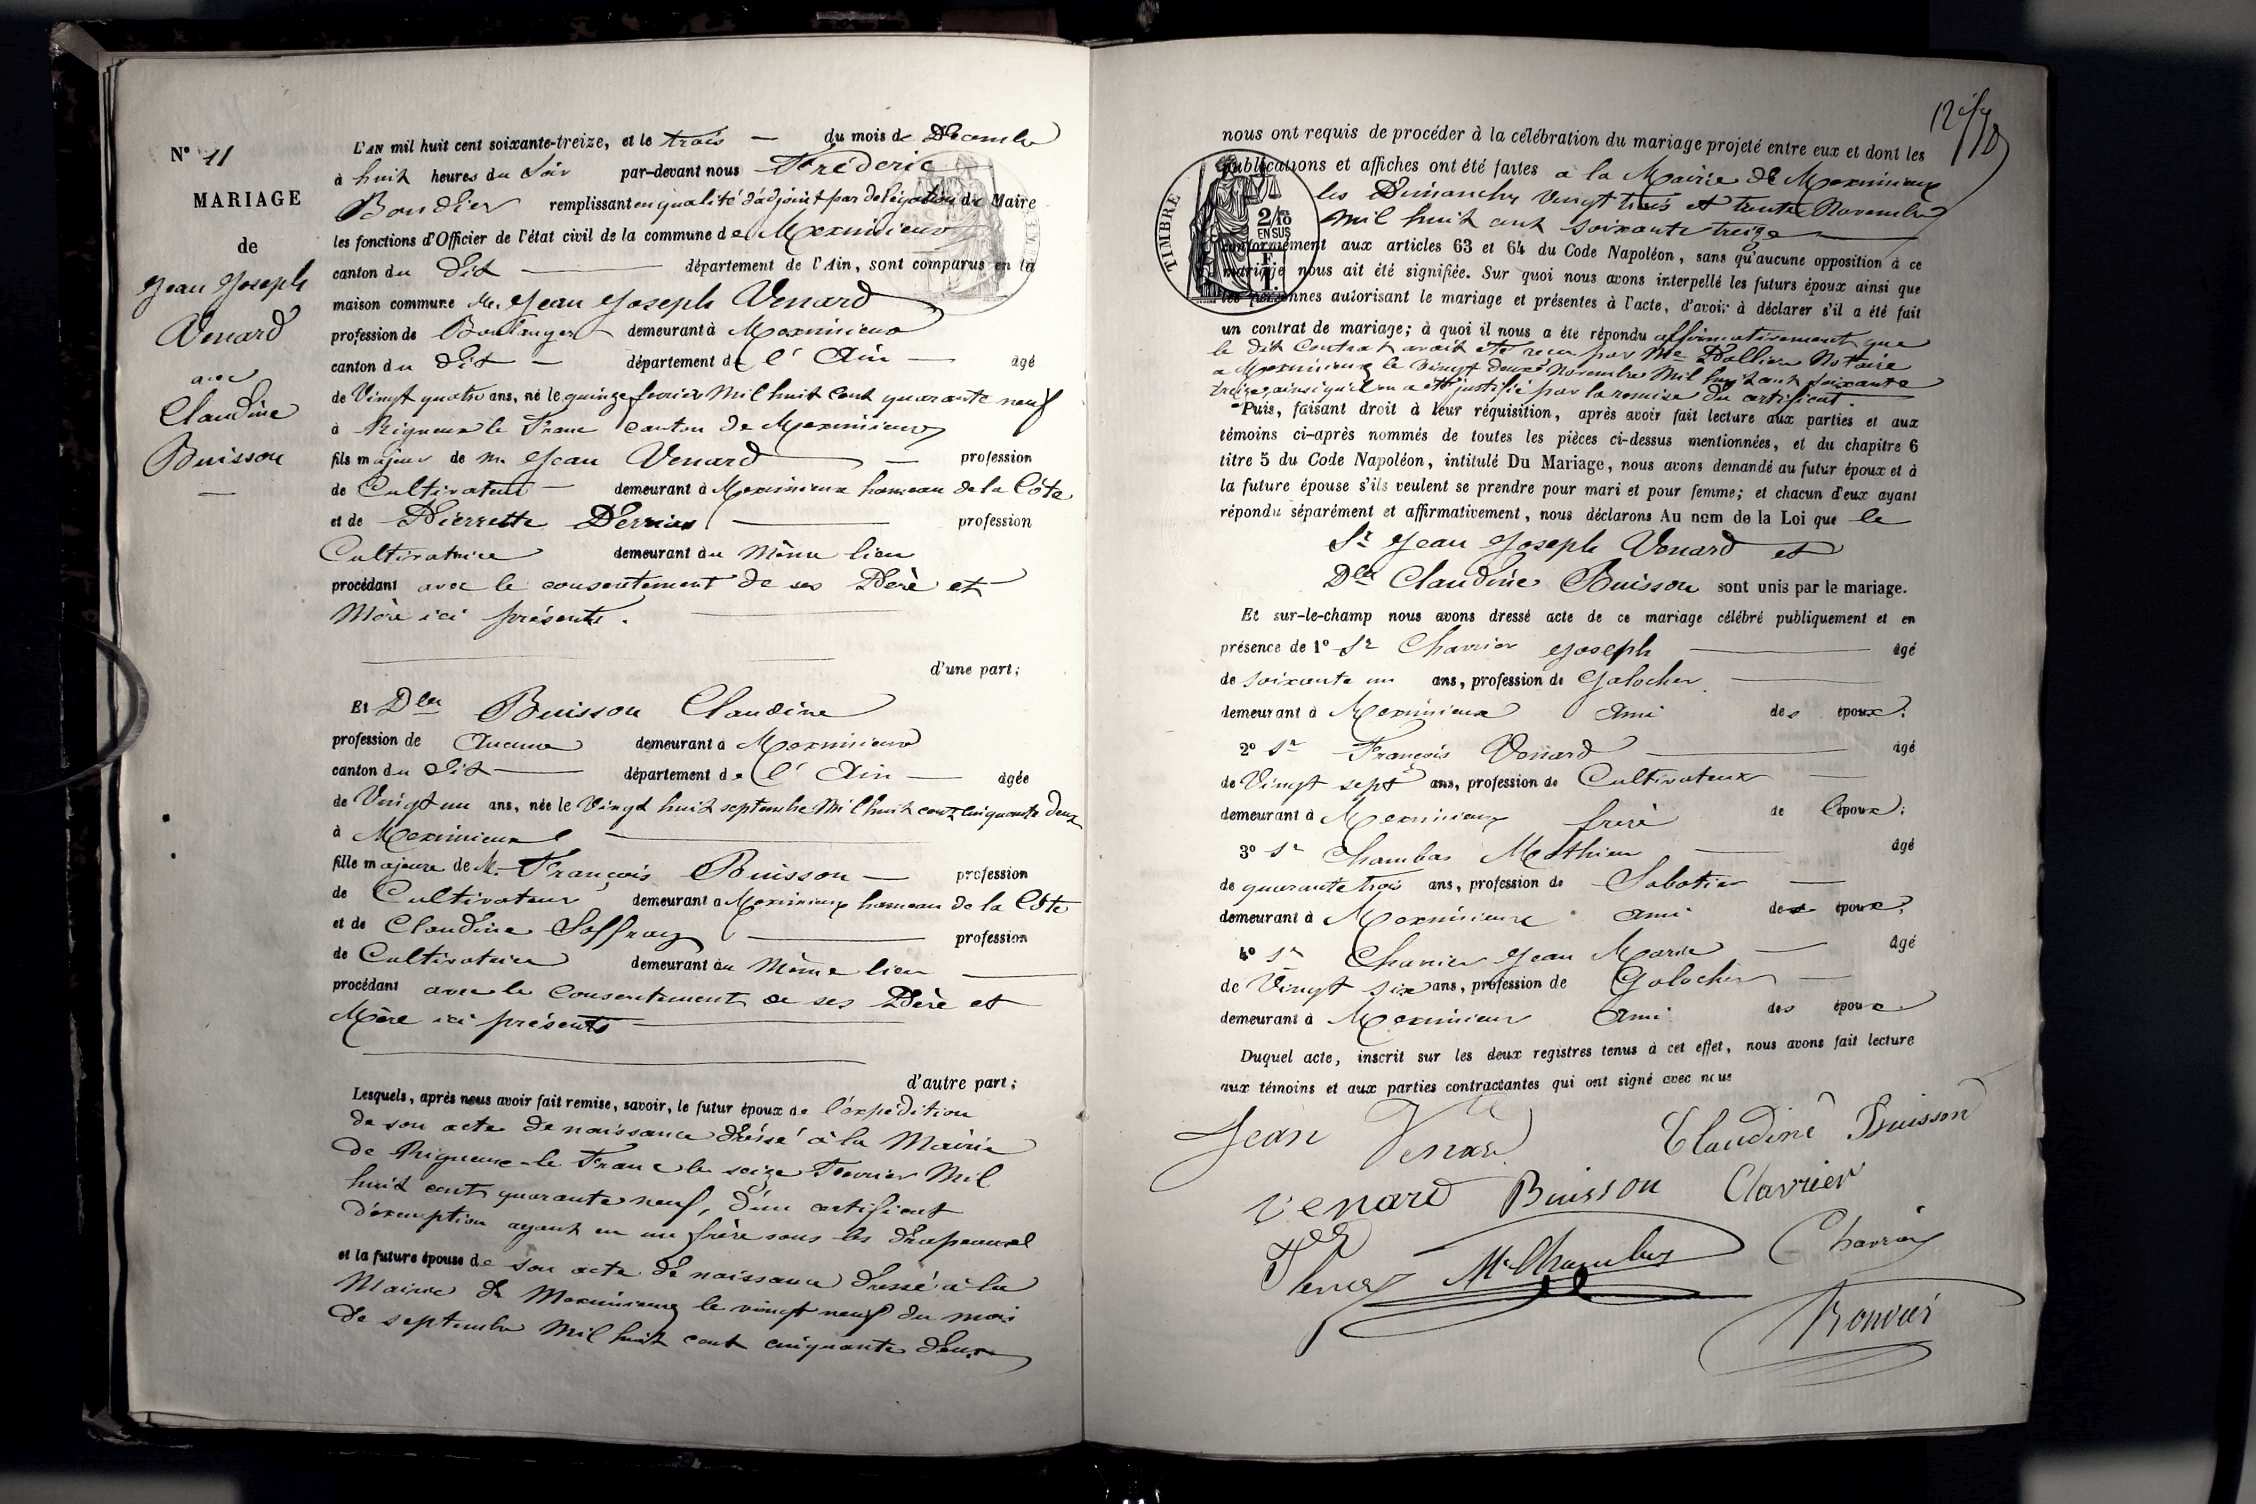 N° 11
MARIAGE
de
Jean Joseph
Venard
avec
Claudine
Buisson
L'AN mil huit cent soixante-treize, et le trois du mois de Décembre
à huit heures du Soir par-devant nous Fréderic
Boudier remplissant en qualité d'adjoint par délégation du Maire
les fonctions d'Officier de l'état civil de la commune de Meximieux
canton du dit département de l'Ain, sont comparus en la
maison commune M. Jean Joseph Venard
profession de Boulanger demeurant à Meximieux
canton du dit département de l'Ain âgé
de Vingt quatre ans, né le quinze fevrier Mil huit Cent quarante neuf
à Rigneux le Franc canton de Meximieux
fils majeur de M. Jean Venard profession
de Cultivateur demeurant à Meximieux hameau de la Côte
et de Pierrette Perrier profession
Cultivatrice demeurant au Même lieu
procédant avec le consentement de ses Père et
Mère ici présents.
d'une part;
Et Dlle Buisson Claudine
profession de Aucune demeurant à Meximieux
canton du dit département de l'Ain âgée
de Vingt un ans, née le Vingt huit septembre Mil huit cent cinquante deux
à Meximieux
fille majeure de M. François Buisson profession
de Cultivateur demeurant à Meximieux hameau de la Côte
et de Claudine Soffray profession
de Cultivatrice demeurant au Même lieu
procédant avec le Consentement de ses Père et
Mère ici présents
d'autre part;
Lesquels, après nous avoir fait remise, savoir, le futur époux de l'expédition
de son acte de naissance dressé à la Mairie
de Rigneux-le Franc le seize Fevrier Mil
huit cent quarante neuf, d'un certificat
d'exemption ayant eu un frère sous les drapeaux
et la future épouse de son acte de naissance dressé à la
Mairie de Meximieux le vingt neuf du mois
de septembre Mil huit cent cinquante deux
nous ont requis de procéder à la célébration du mariage projeté entre eux et dont les
publications et affiches ont été faites à la Mairie de Meximieux
les Dimanches Vingt trois et trente Novembre
Mil huit cent soixante treize
conformément aux articles 63 et 64 du Code Napoléon, sans qu'aucune opposition à ce
mariage nous ait été signifiée. Sur quoi nous avons interpellé les futurs époux ainsi que
les personnes autorisant le mariage et présentes à l'acte, d'avoir à déclarer s'il a été fait
un contrat de mariage; à quoi il nous a été répondu affirmativement que
le dit Contrat avait été reçu par Me Notaire
a Meximieux le Vingt deux Novembre Mil huit cent soixante
treize, ainsi qu'il en a été justifié par la remise du certificat.
Puis, faisant droit à leur réquisition, après avoir fait lecture aux parties et aux
témoins ci-après nommés de toutes les pièces ci-dessus mentionnées, et du chapitre 6
titre 5 du Code Napoléon, intitulé Du Mariage, nous avons demandé au futur époux et à
la future épouse s'ils veulent se prendre pour mari et pour femme; et chacun d'eux ayant
répondu séparément et affirmativement, nous déclarons Au nom de la Loi que le
Sr Jean Joseph Venard et
Dlle Claudine Buisson sont unis par le mariage.
Et sur-le-champ nous avons dressé acte de ce mariage célébré publiquement et en
présence de 1° Sr Charrier Joseph âgé
de soixante un ans, profession de Galocher
demeurant à Meximieux Ami des époux.
2° Sr François Venard âgé
de Vingt sept ans, profession de Cultivateur
demeurant à Meximieux frère de l'époux.
3° Sr Chambas Mathieu âgé
de quarante trois ans, profession de Sabotier
demeurant à Meximieux ami des époux.
4° Sr Charrier Jean Marie âgé
de Vingt six ans, profession de Galocher
demeurant à Meximieux Ami des époux
Duquel acte, inscrit sur les deux registres tenus à cet effet, nous avons fait lecture
aux témoins et aux parties contractantes qui ont signé avec nous
TIMBRE
2/10
EN SUS
Jean Venard Claudine Buisson
Venard Buisson Clavrier
M. Chambas Charrier